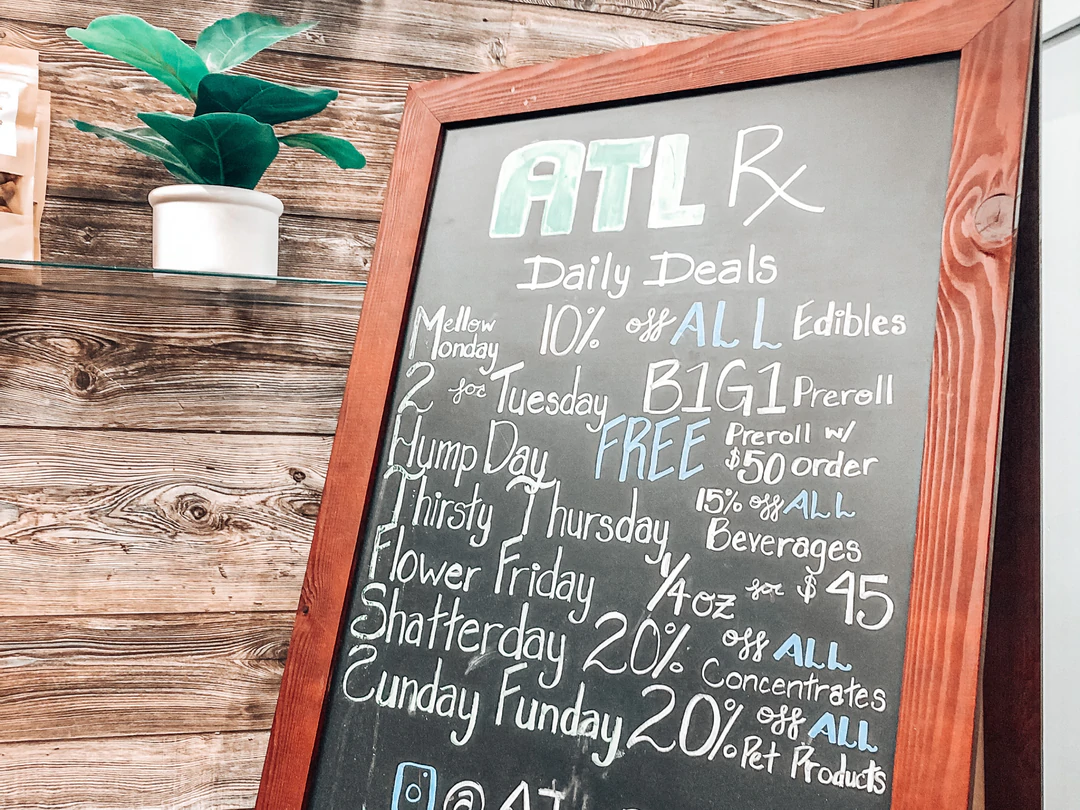 ATL Rx
Daily Deals
Mellow Monday 10% off ALL Edibles
2 for Tuesday B1G1 Preroll
Hump Day FREE Preroll w/ $50 order
Thirsty Thursday 15% off ALL Beverages
Flower Friday 1/4 oz for $45
Shatterday 20% off ALL Concentrates
Sunday Funday 20% off ALL Pet Products